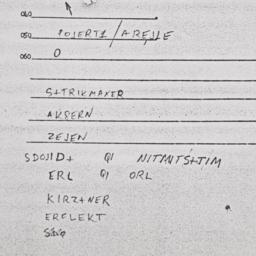 040
050 POJERTI/AREJJE
060 O
S+TRIKMAXER
AKSERN
ZEJEN
SDOJID+ QI NITMITS+TIM
ERL QI ORL
KIRZ+NER
ERFLEKT